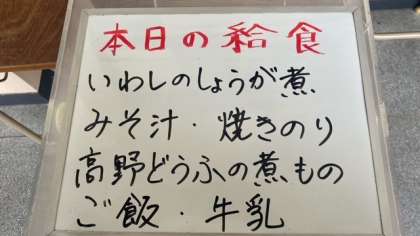 本日の給食
いわしのしょうが煮
みそ汁・焼きのり
高野どうふの煮もの
ご飯・牛乳